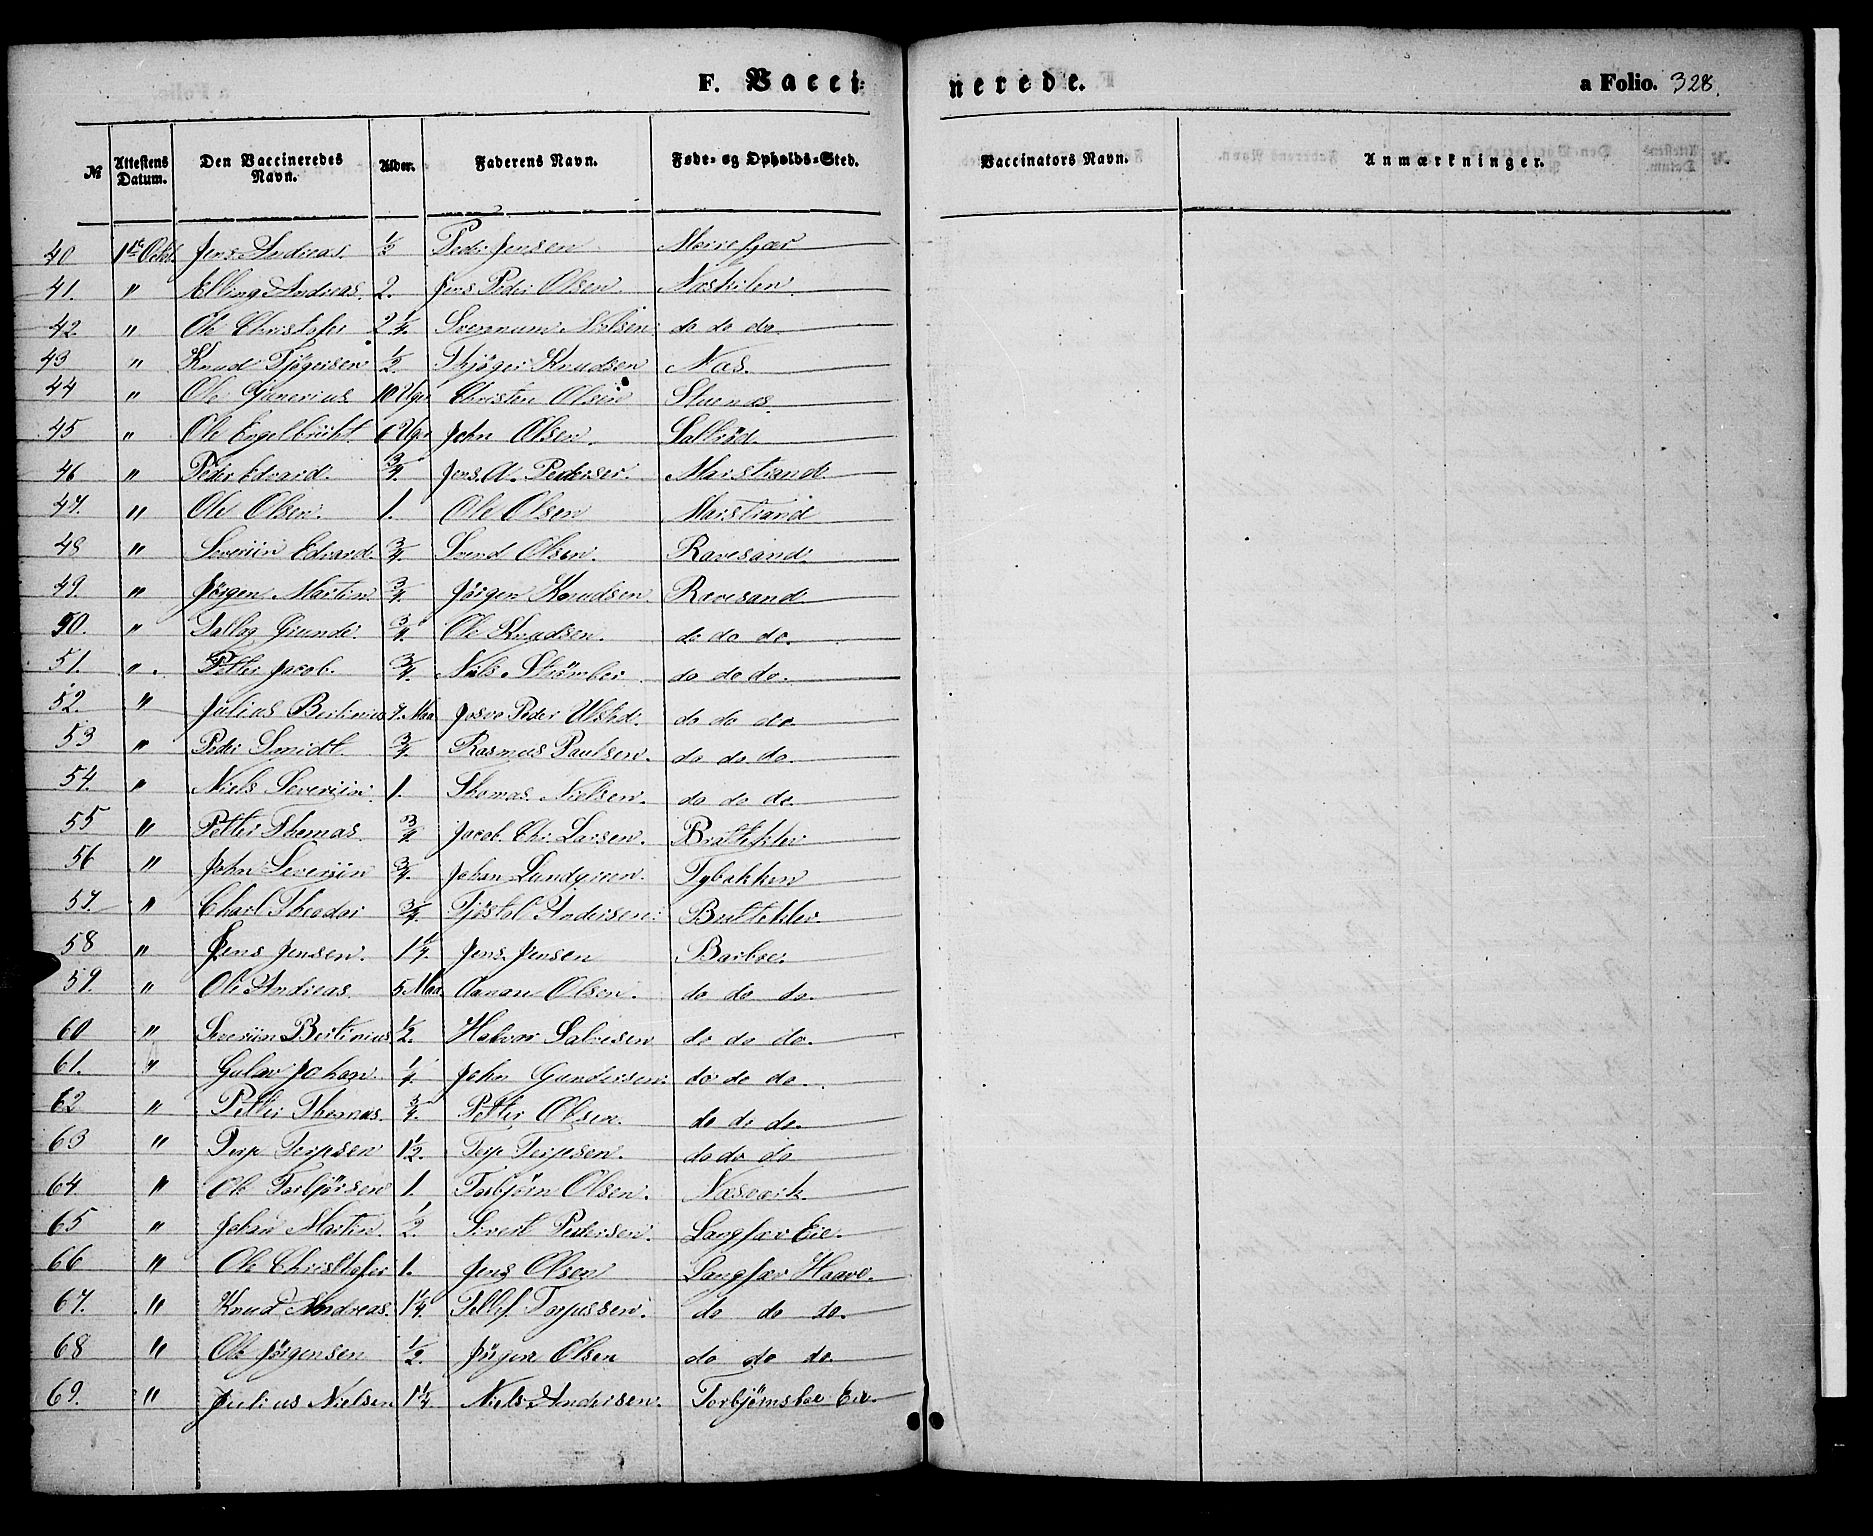 F. Vacci- nerede. a Folio. 328.
№ Attestens Datum. Den Vaccineredes Navn. Alder. Faderens Navn. Føde- og Opholds-Sted. Vaccinators Navn. Anmærkninger.
40 1ste Octb. Jens Andreas. Peder Jensen
41. " Elling Andreas. 2. Jens Peder Olsen. Naskilen
42. " Ole Christofer 2 1/4. Nielsen do do do.
43 " Knud Tjøgersen 1/2 Thjøger Knudsen Næs.
44 " Ole 10 Uger Christen Olsen Stuenæs.
45 " Ole Engelbricht 6 Uger John Olsen. Saltrød.
46 " Peder Edvard. 3/4. Jens A. Pedersen. Marstrand
47. " Ole Olsen. 1. Ole Olsen Marstrand
48 " Severiin Edvard. 3/4. Svend Olsen. Ravesand.
49. " Jørgen Martin. 3/4. Jørgen Knudsen. Ravesand
50. " Tallog Gunde. 3/4. Ole Knudsen. do do do.
51. " Petter Jacob. 3/4. Niels do do do.
52. " Julius Bertinius 7. Maa. Peder do do do.
53 " Peder Smidt. 3/4. Rasmus Paulsen. do do do.
54. " Niels Severiin. 1. Thomas Nielsen. do do do.
55 " Petter Thomas. 3/4 Jacob Chr. Larsen. Bratteklev
56 " John Severiin 3/4. Johan Lundgreen. Tybakken
57. " Charl Theodor 3/4. Tjøstel Andersen. Bratteklev.
58 " Jens Jensen. 1 1/4. Jens Jensen Barboe.
59. " Ole Andreas. 5 Maa. Aanan Olsen. do do do.
60 " Severiin Bertinius 1/2. Halvor Salvesen do do do.
61. " Johan. 1/4. John Gundersen. do do do.
62 " Petter Thomas. 3/4. Petter Olsen. do do do.
63 " Terje Terjesen 1 1/2. Terje Terjesen. do do do
64. " Ole Torbjørsen 1. Torbjørn Olsen. Næsværk.
65 " Johan Martin. 1/2. Sivert Pedersen. Langsæv Eie.
66 " Ole Christofer 1. Jens Olsen Langsæv Haave.
67. " Knud Andreas. 1 1/4. Tellef Torjussen. do do do.
68 " Ole Jørgensen 1/2. Jørgen Olsen do do do.
69. " Julius Nielsen 1 1/4. Niels Andersen. Eie.